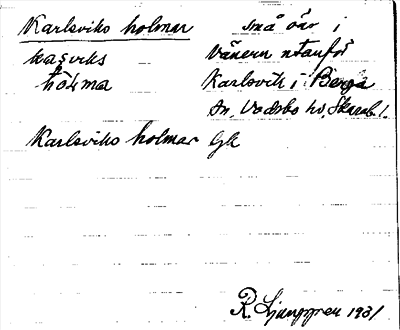 Karlsviks holmar små öar i
kaṣviks Vänern utanför
hòɫma Karlsvik i Berga
sn, Vadsbo hd, Skarab. l.
Karlsviks holmar Gk
R. Ljunggren 1931